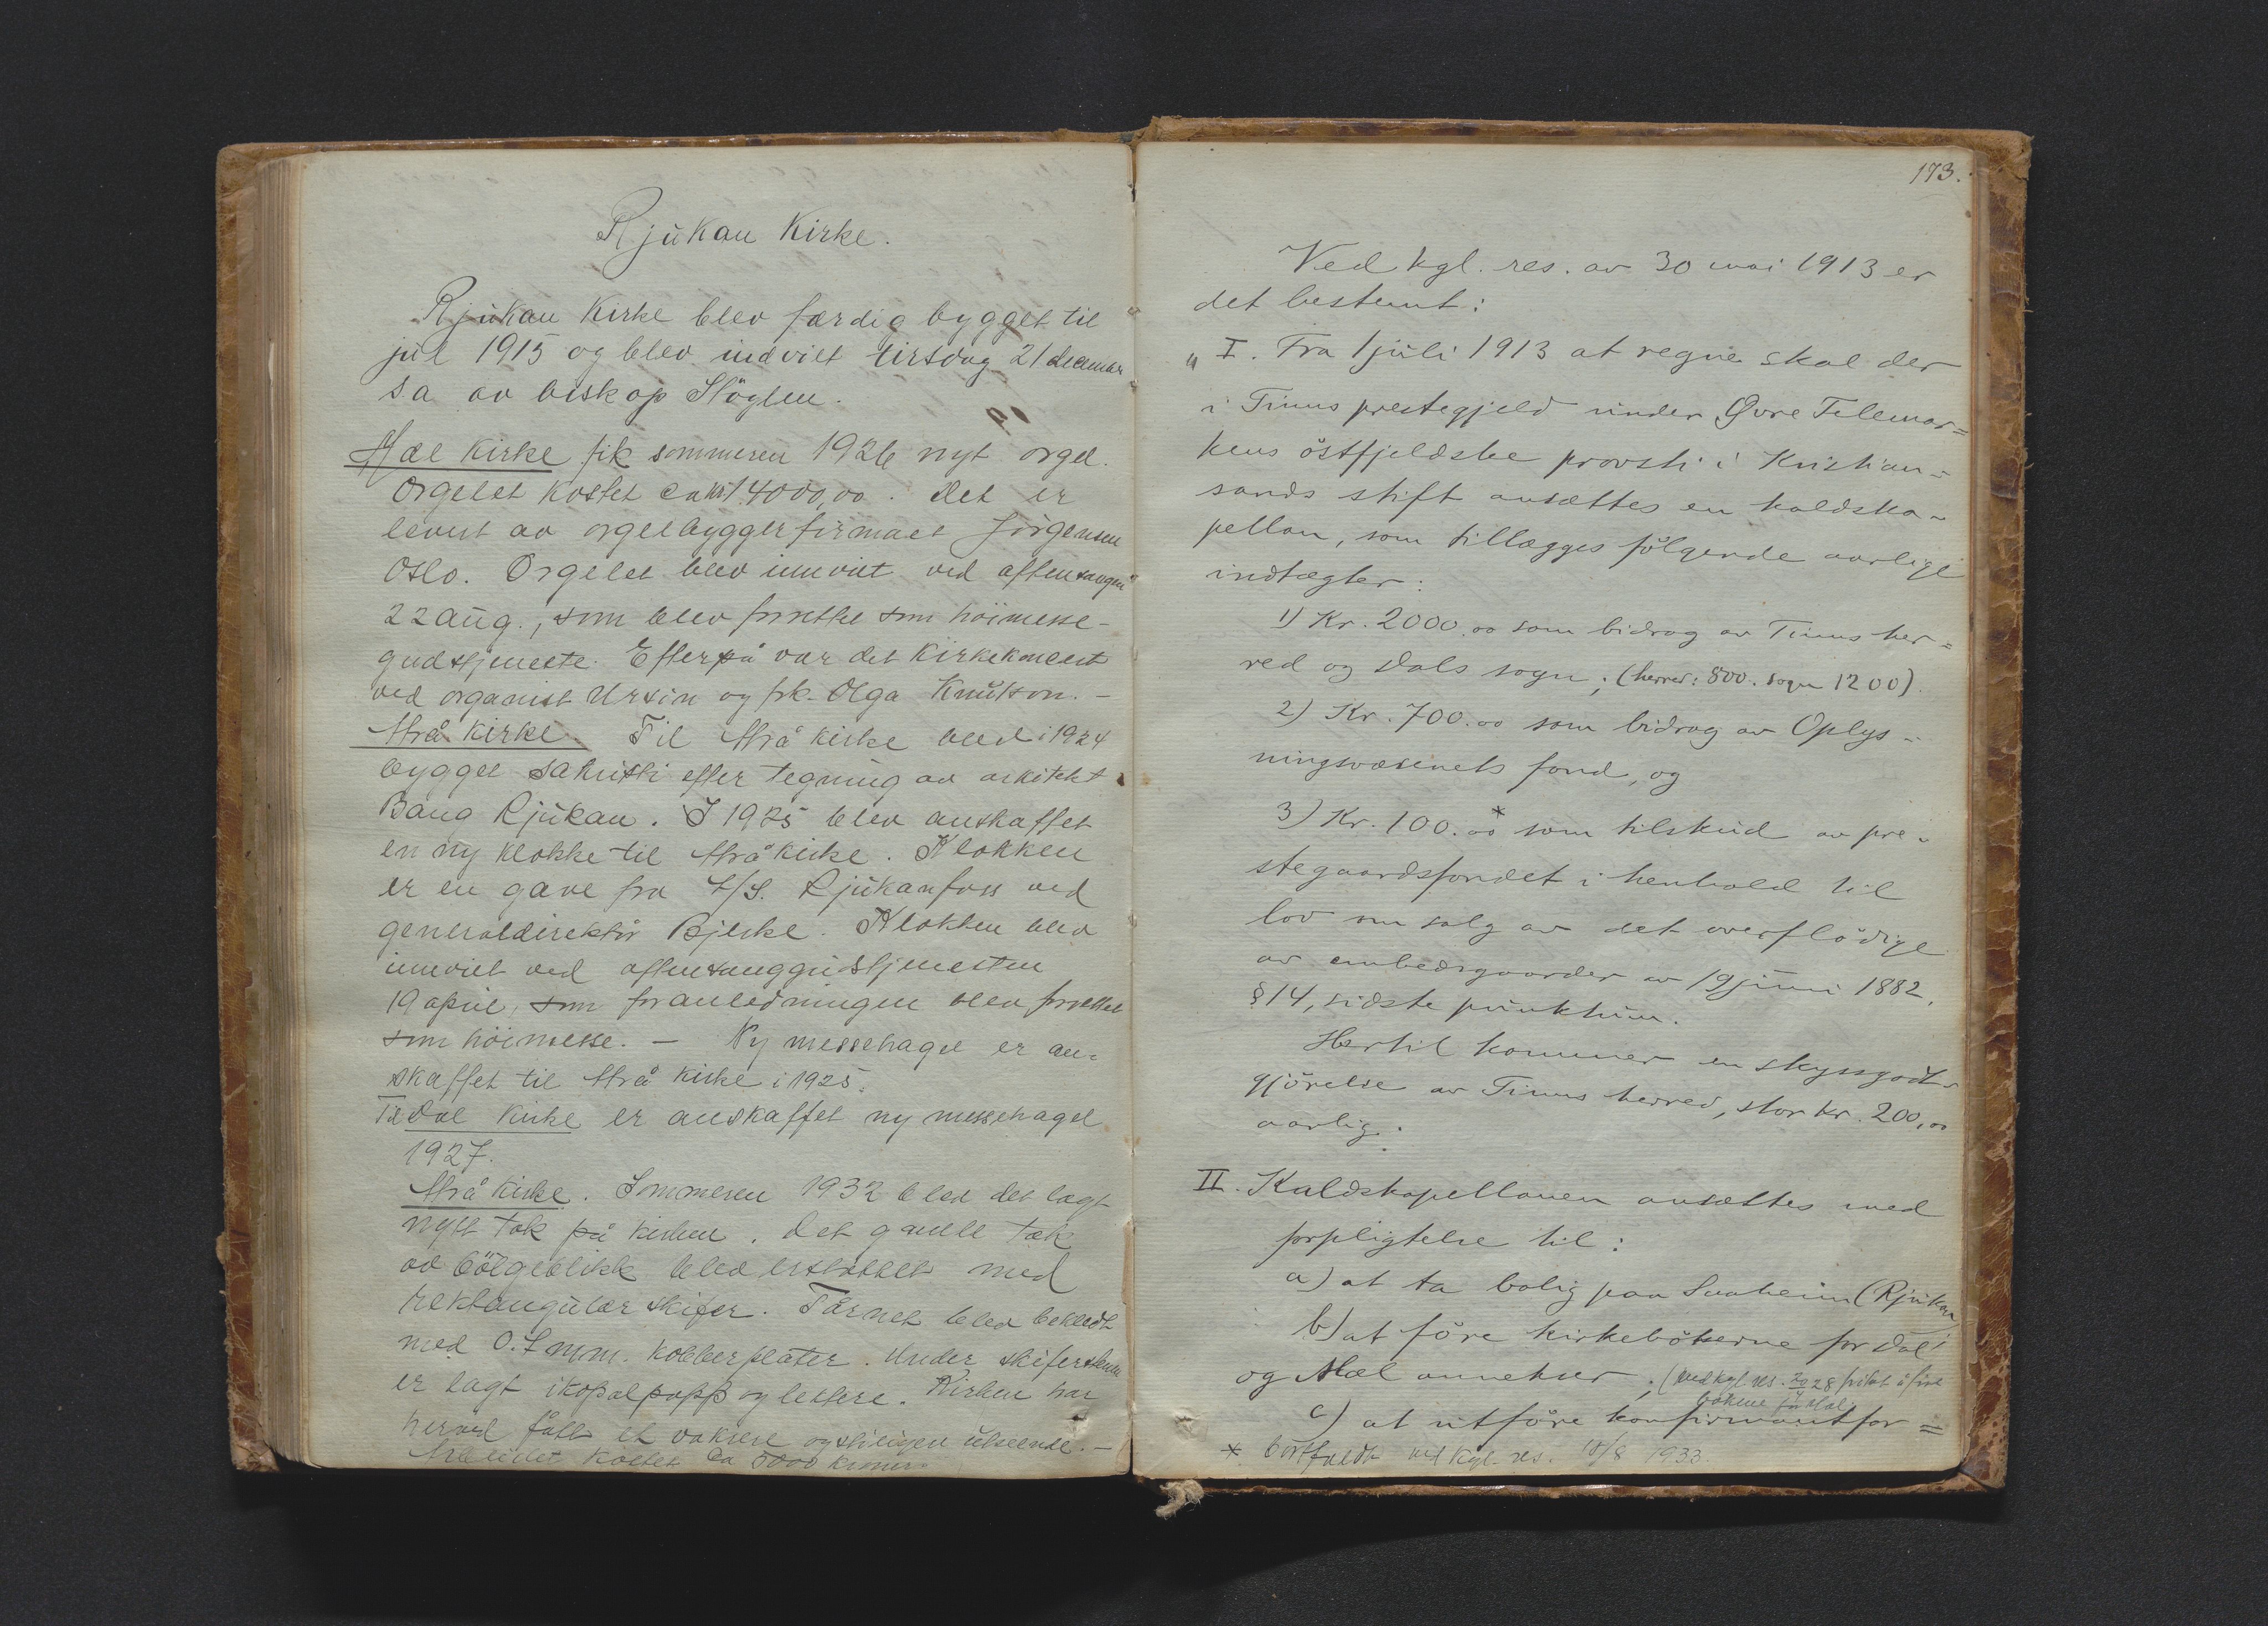 Rjukan Kirke.
Rjukan Kirke blev færdig bygget til
jul 1915 og blev indviet tirsdag 21 decembr
s.a. av biskop Støylen.
Mæl kirke fik sommeren 1926 nyt orgel.
Orgelet kostet ca kr 14000,00. Det er
levert av orgelbyggerfirmaet Jørgensen
Oslo. Orgelet blev innviet ved aftensangen
22 aug., som blev forrettet som höimesse-
gudstjeneste. Efterpå var det kirkekoncert
ved organist Ursin og frk. Olga Knutson. –
Attrå kirke. Til Attrå kirke blev i 1924
bygget sakristi efter tegning av arkitekt
Bang Rjukan. I 1925 blev anskaffet
en ny klokke til Attrå kirke. Klokken
er en gave fra A/S. Rjukanfoss ved
generaldirektör Bjerke. Klokken blev
innviet ved aftensanggudstjenesten
19 april, som foranledningen blev forrettet
som höimesse. – Ny messehagel er an-
skaffet til Attrå kirke i 1925.
Til Dal kirke er anskaffet ny messehagel
1927.
Attrå kirke. Sommeren 1932 blev det lagt
nytt tak på kirken. Det gamle tak
av bölgeblikk blev erstattet med
rektangulær skifer. Tårnet blev bekledt
med 0.7 mm. kobberplater. Under skifersteinen
er lagt ikopalpapp og lektere. Kirken har
herved fått et vakrere og stiligere utseende. –
Arbeidet kostet ca 5000 kroner.
173.
Ved kgl. res. av 30 mai 1913 er
det bestemt:
„ I. Fra 1 juli 1913 at regne skal der
i Tinns prestegjeld under Øvre Telemar=
kens östfjeldske provsti i Kristian-
sands stift ansættes en kaldska-
pellan, som tillægges fölgende aarlige
indtægter:
1) Kr. 2000.00 som bidrag av Tinns her=
red og Dals sogn; (herred: 800. sogn 1200).
2) Kr. 700.00 som bidrag av Oplys-
ningsvæsenets fond, og
3) Kr. 100.00* som tilskud av pre-
stegaardsfondet i henhold til
lov om salg av det overflödige
av embedsgaarder av 19 juni 1882,
§ 14, sidste punktum.
Hertil kommer en skyssgodt-
gjörelse av Tinns herred, stor kr. 200,00
aarlig.
II. Kaldskapellanen ansættes med
forpligtelse til:
a) at ta bolig paa Saaheim (Rjukan)
b) at före kirkebökerne for Dal
og Mæl annekser; (ved kgl. res. 20/4 28 fritatt å före
bökene for Mæl)
c) at utföre konfirmantfor=
* bortfaldt ved kgl. res. 10/8 1933.